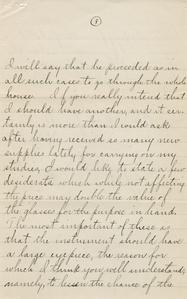 5
I will say that he proceeded as in
all such cases to go through the whole
house. If you really intend that
I should have another, and it cer-
tainly is more than I would ask
after having received so many new
supplies lately, for carrying on my
studies, I would like to state a few
desiderata which while not affecting
the price may double the value of
the glasses for the purpose in hand.
The most important of these is
that the instrument should have
a large eyepiece, the reason for
which I think you well understand,
namely, to lessen the chance of the